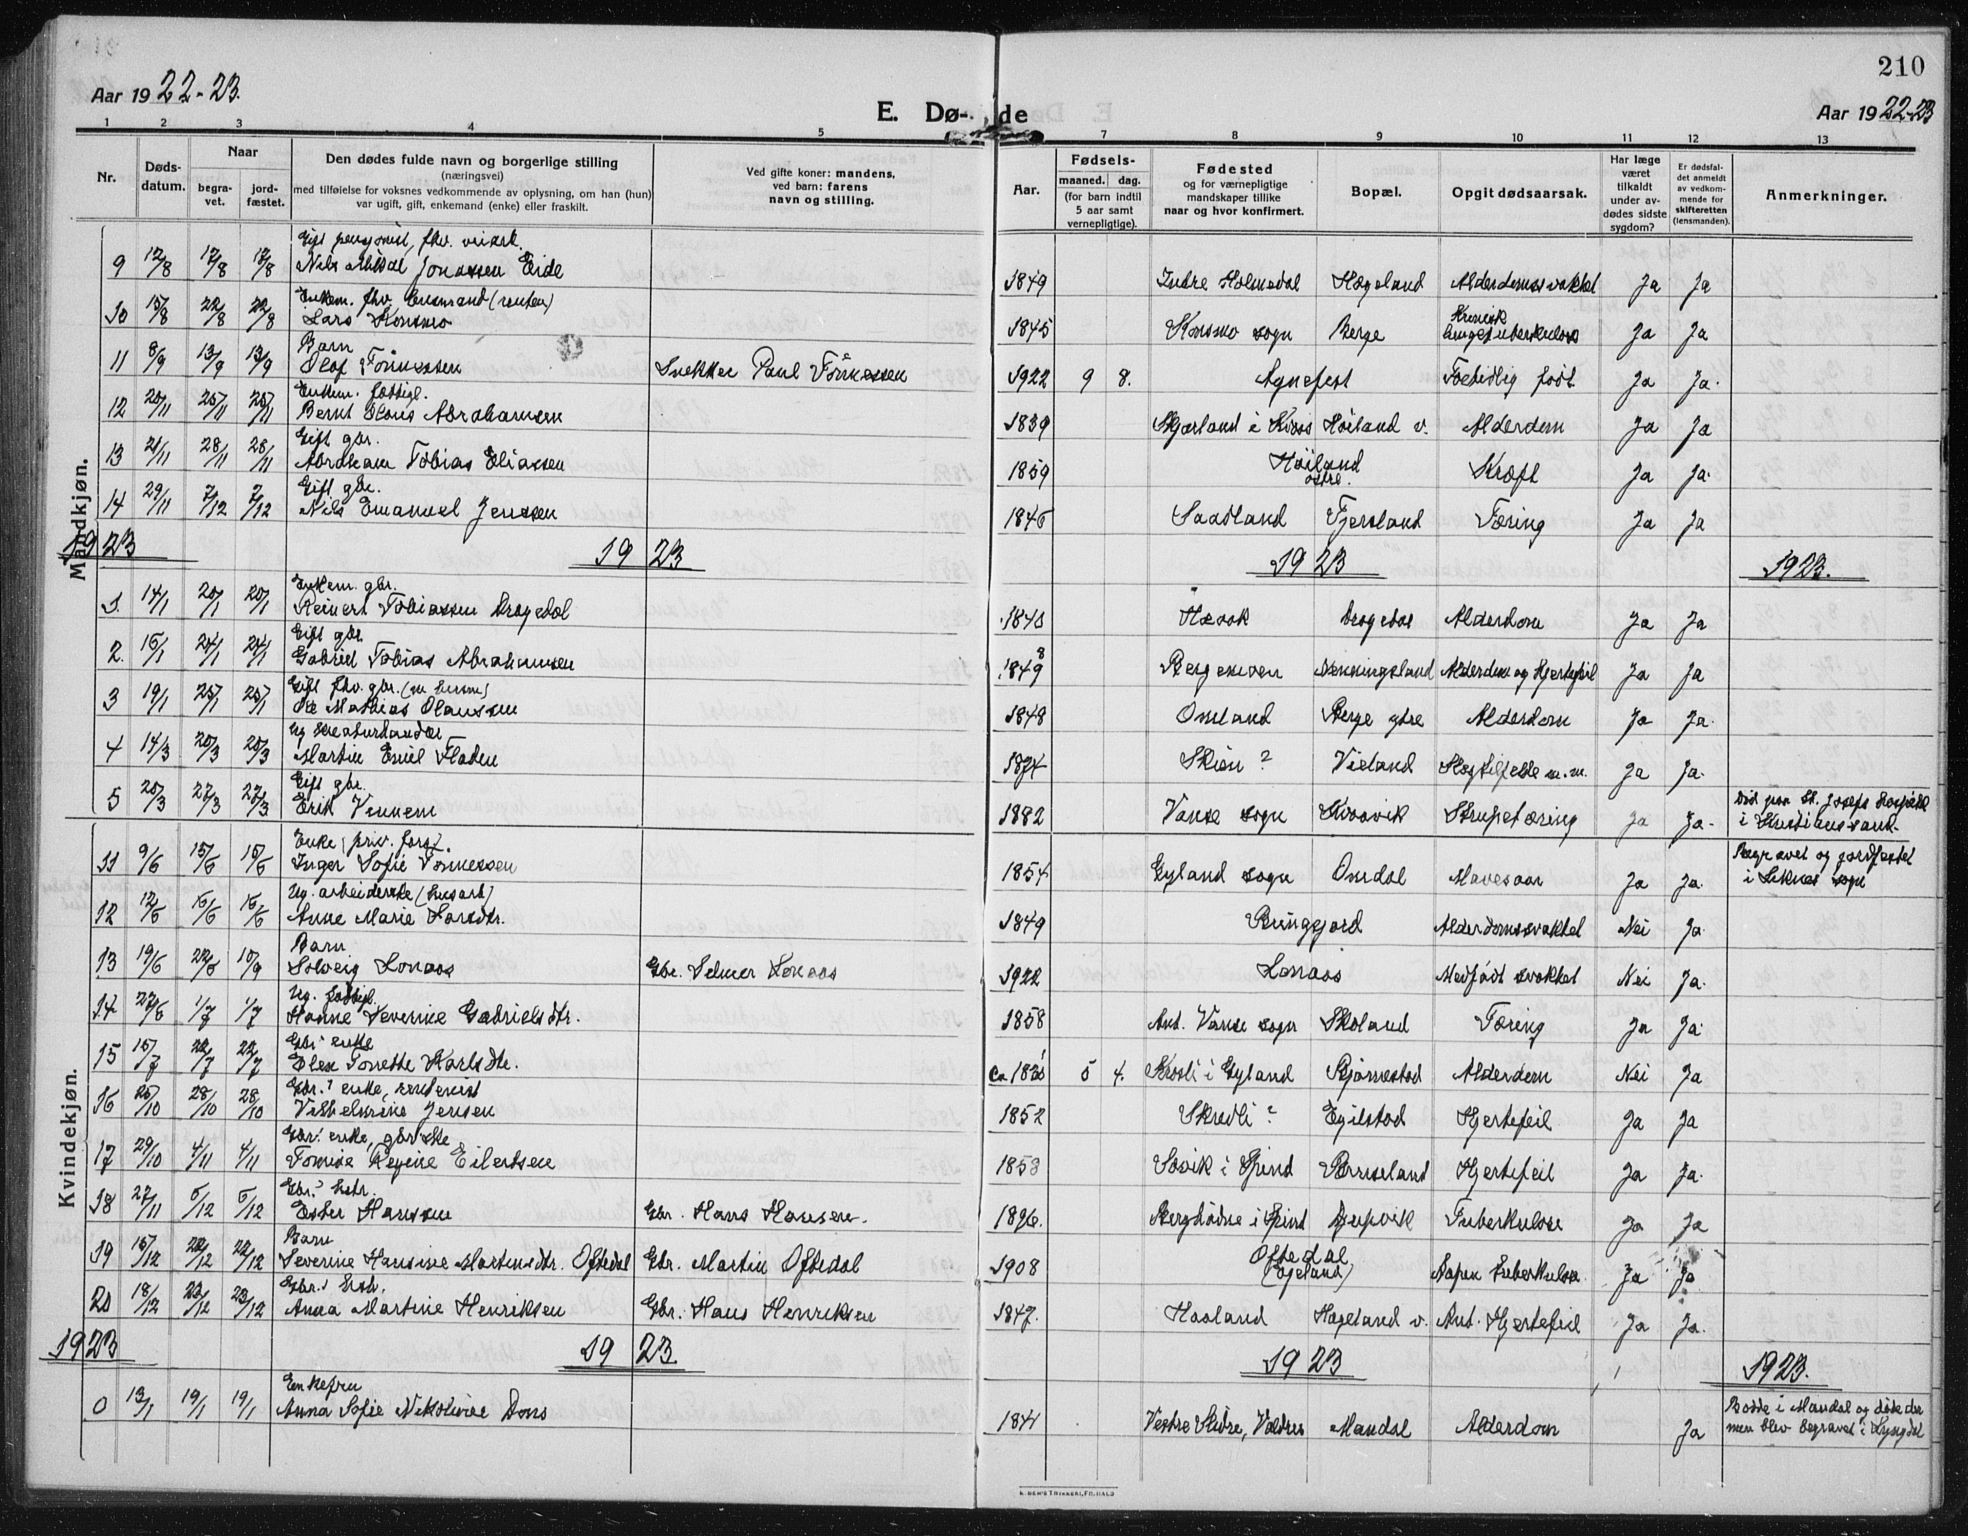 210
Aar 1922-23.
E. Dø- de
Aar 1922-23
1 2 3 4 5 7 8 9 10 11 12 13
Nr. Døds-datum. Naar begra-vet. jord-fæstet. Den dødes fulde navn og borgerlige stilling (næringsvei) med tilføielse for voksnes vedkommende av oplysning, om han (hun) var ugift, gift, enkemand (enke) eller fraskilt. Ved gifte koner: mandens, ved barn: farens navn og stilling. Aar. Fødsels- maaned. dag. (for barn indtil 5 aar samt vernepligtige). Fødested og for værnepligtige mandskaper tillike naar og hvor konfirmert. Bopæl. Opgit dødsaarsak. Har læge været tilkaldt under av-dødes sidste sygdom? Er dødsfal-det anmeldt av vedkom-mende for skifteretten (lensmanden). Anmerkninger.
Mandkjøn.
Gift pensjonist, fhv.
9 12/8 17/8 17/8 Nils Jonassen Eide 1849 Indre Holmedal Hægeland Alderdomssvakhet Ja Ja
Enkem. fhv.
10 15/8 22/8 22/8 Lars Konsmo 1845 Konsmo sogn Berge Kronisk lungetuberkulose Ja Ja
Barn
11 8/9 13/9 13/9 Olaf Tönnessen Snekker Paul Tönnessen 1922 9 8. Agnefest Foetidlig født Ja Ja.
Enkem. fattigl.
12 20/11 25/11 25/11 Bernt Abrahamsen 1839 Skjærland i Kvaas Høiland v. Alderdom Ja Ja
Gift gbr.
13 21/11 28/11 28/11 Abraham Tobias Eliassen 1859 Høiland østre. Kræft Ja Ja.
Gift gbr.
14 29/11 7/12 7/12 Nils Emanuel Jenssen 1846 Saadland Fjersland Tæring Ja Ja
1923 1923 1923 1923.
Enkem. gbr.
1. 14/1 20/1 20/1 Reinert Tobiassen Dragedal Drogedal Alderdom Ja Ja
Gift gbr.
2. 15/1 24/1 24/1 Gabriel Tobias Abrahamsen 1849 8 Alderdom og Hjertefeil Ja Ja
Gift fhv. gbr.
3 19/1 25/1 25/1 Ole Mathias Olaussen 1848 Omland Berge Alderdom Ja Ja.
Ug.
4 14/3 20/3 20/3 Martin Emil Floden 1874 Skien? Vieland m.m. Ja Ja.
Gift gbr.
5 20/3 27/3 27/3 Erik Vennem 1882 Vanse sogn Kvaavik Strupetæring Ja Ja. Død paa St. Josefs Hospital i Kristianssand.
Kvindekjøn.
Enke, priv. fors.
11 9/6 15/6 15/6 Inger Sofie Tönnessen 1854 Gyland sogn Omdal Mavesaar Ja Ja. Begravet og jordfæstet i Liknes sogn
Ug. arbeiderske (husarb)
12 12/6 16/6 16/6 Anne Marie Larsdtr. 1849 Ringgjord Alderdomssvakhet Nei Ja.
Barn
13 19/6 22/6 10/9 Solveig Lonaas Gbr. Selmer Lonaas 1922 Lonaas Medfødt svakhet Nei Ja.
Ug. fattigl.
14 27/6 1/7 1/7 Hanne Severine Gabrielsdtr. 1858 Ant. Vanse sogn Skoland Tæring Ja Ja.
Gbr. enke
15 15/7 22/7 22/7 Elen Tonette Karlsdtr. 5 4. Kvosli i Gyland Bjørnestad Alderdom Nei Ja
Gbr.? enke,
16 25/10 28/10 28/10 Vilhelmine Jensen 1852 Skredli? Egilstad Hjertefeil Ja Ja
Gbr. enke, gårdske
17 29/10 4/11 4/11 Tomine Regine Eilertsen 1853 Sævik i Spind Hjertefeil Ja Ja.
Gbr.? hstr.
18 27/11 5/12 5/12 Ester Hanssen Gbr. Hans Hansen. 1896. i Spind Djupvik Tuberkulose Ja Ja
Barn
19 15/12 22/12 22/12 Severine Hansine Martinsdtr. Oftedal Gbr. Martin Oftedal 1908 Oftedal (Egeland) Aapen tuberkulose Ja Ja
Gbr.? hstr.
20 18/12 23/12 23/12 Anna Martine Henriksen Gbr. Hans Henriksen 1847. Haaland Hægeland v. Ant. Hjertefeil Ja Ja.
1923 1923 1923 1923.
Enkefru
0 13/1 19/1 19/1 Anna Sofie Nikolivie Dons 1841 Vestre Slidre, Valdres Mandal Alderdom Ja Bodde i Mandal og døde der men blev begravet i Lyngdal